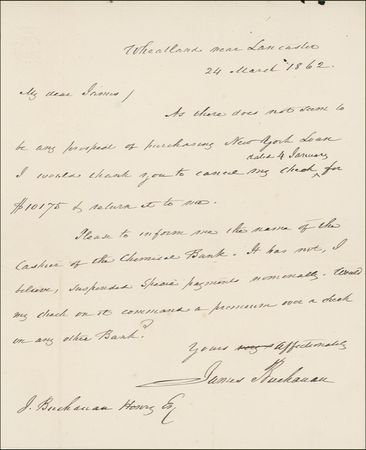 Wheatland near Lancaster
24 March 1862.
My dear James/
As there does not seem to
be any prospect of purchasing New York Loan
dated 4 January
I would thank you to cancel my check for
$10175 & return it to me.
Please to inform me the name of the
Cashier of the Chemical Bank. It has not, I
believe, suspended Specie payments nominally. Would
my check on it command a premium over a check
on any other Bank?
Yours very Affectionately
James Buchanan
J. Buchanan Henry Esq